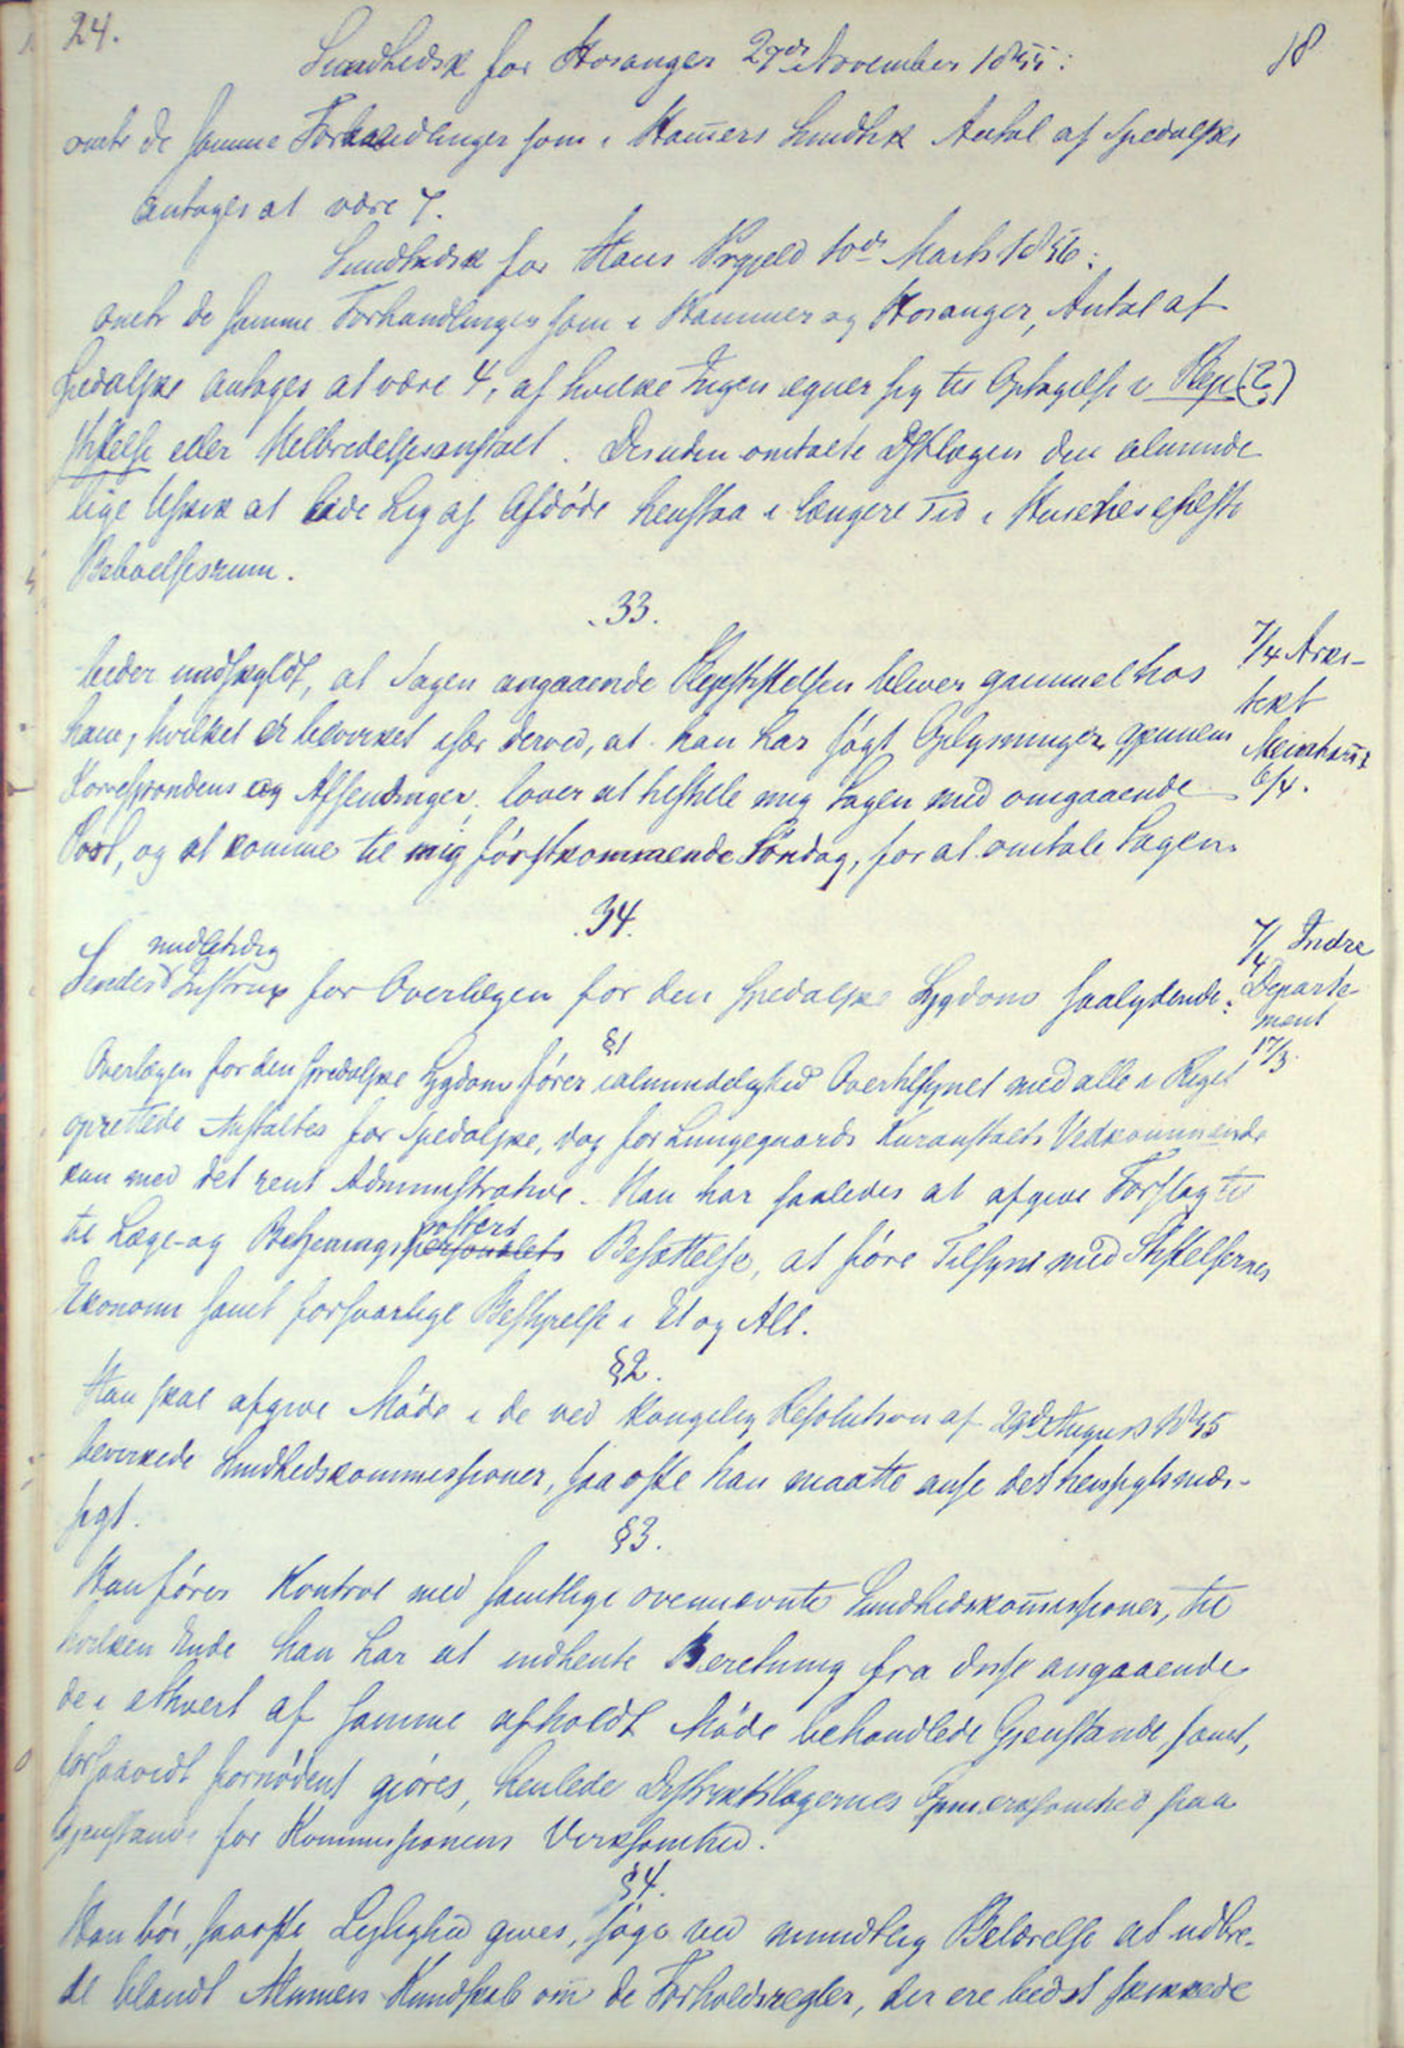 24.
18
Sundhedsk for Hosanger 27de November 1855:
omtr de samme Forhandlinger som i Hamers Sundhk Antal af Spedalske
antages at være 7.
Sundhedsk for Haus Prgjeld 10de Marts 1856:
omtr de samme Forhandlinger som i Hammer og Hosanger, Antal af
Spedalske antages at være 4, af hvilke Ingen egner sig til Optagelse i Pleje (?)
stiftelse eller Helbredelsesanstalt. Desuden omtalte Dstlægen den alminde
lige Uskik at lade Lig af Afdöde henstaa i længere Tid i Husenes
Beboelsesrum.
33.
beder undskyldt, at Sagen angaaende Plejestiftelsen bliver gammel hos
ham, hvilket er bevirket især derved, at han har sögt Oplysninger gjennem
Korrespondens og Affendinger, lover at tilstille mig Sagen med omgaaende
Post, og at komme til mig förstkommende Söndag, for at omtale Sagen.
7/4 Arki-
tekt
6/4.
34.
midlertidig
Sendes Instrux for Overlægen for den spedalske Sygdom saalydende:
7/4 Indre
Departe-
ment
17/3.
§1
Overlægen for den spedalske Sygdom förer i almindelighed Overtilsynet med alle i Riget
oprettede Anstalter for Spedalske, dog for Lungegaards Kuranstalts Vedkommende
kun med det rent Administrative. Han har saaledes at afgive Forslag til
til Læge- og Betjenings posters personalets Besættelse, at före Tilsyn med Stiftelsernes
Ekonomi samt forsvarlige Bestyrelse i Et og Alt.
§2.
Han skal afgive Möde i de ved Kongelig Resolution af 29de August 1855
bevirkede Sundhedskommissioner, saa ofte han maatte anse det hensigtsmæs-
sigt.
§3.
Han förer Kontrol med samtlige ovennævnte Sundhedskom̅issioner, til
hvilken Ende han har at indhente Beretning fra disse angaaende
de i ethvert af samme afholdt Möde behandlede Gjenstande, samt,
forsaavidt fornödent gjöres, henlede Distriktslægernes Opmærksomhed paa
Gjenstande for Kommissionens Virksomhed.
§4.
Han bör, saaofte Leilighed gives, söge ved mundtlig Belærelse at udbre-
de blandt Almuen Kundskab om de Forholdsregler, der ere bedst skikkede